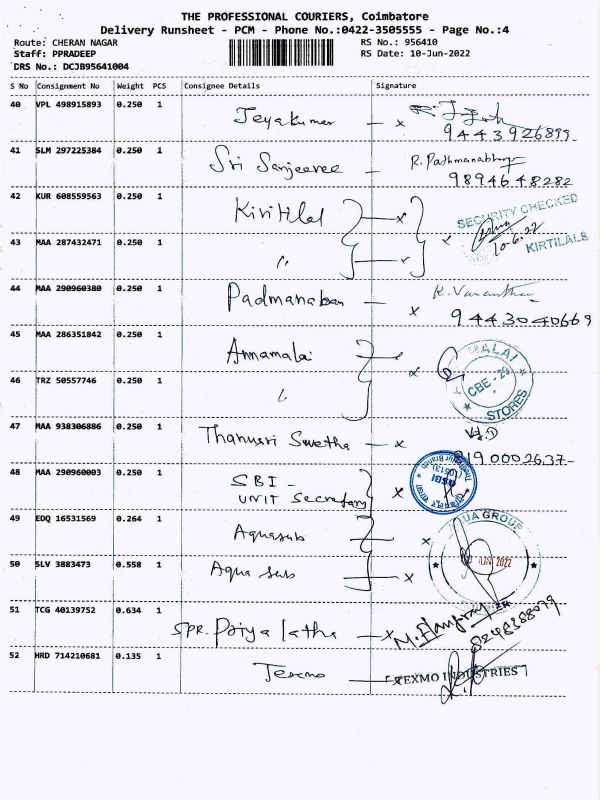 THE PROFESSIONAL COURIERS, Coimbatore
Delivery Runsheet - PCM - Phone No.:0422-3505555 - Page No.:4
Route: CHERAN NAGAR
RS No.: 956410
Staff: PPRADEEP
RS Date: 10-Jun-2022
DRS No.: DCJB95641004
S No Consignment No Weight PCS Consignee Details Signature
40 VPL 498915893 0.250 1 Jeyakumar
9443926899
41 SLM 297225384 0.250 1 Sri Sanjeevee
9894648282
42 KUR 608559563 0.250 1 Kiritilal
SECURITY CHECKED
10-6.22
KIRTILALS
43 MAA 287432471 0.250 1 "
44 MAA 290960380 0.250 1 Padmanaban
9443040669
45 MAA 286351842 0.250 1 Annamalai
CBE - 29
STORES
46 TRZ 50557746 0.250 1 "
47 MAA 938306886 0.250 1 Thanusri Swetha
48 MAA 290960003 0.250 1 SBI -
UNIT Secretary
SBI
49 EDQ 16531569 0.264 1 Aquasub
UA GROUP
50 SLV 3883473 0.558 1 Aqua sub
JUN 2022
51 TCG 40139752 0.634 1 SPR. Priya latha
52 HRD 714210681 0.135 1 Texmo
TEXMO INDUSTRIES